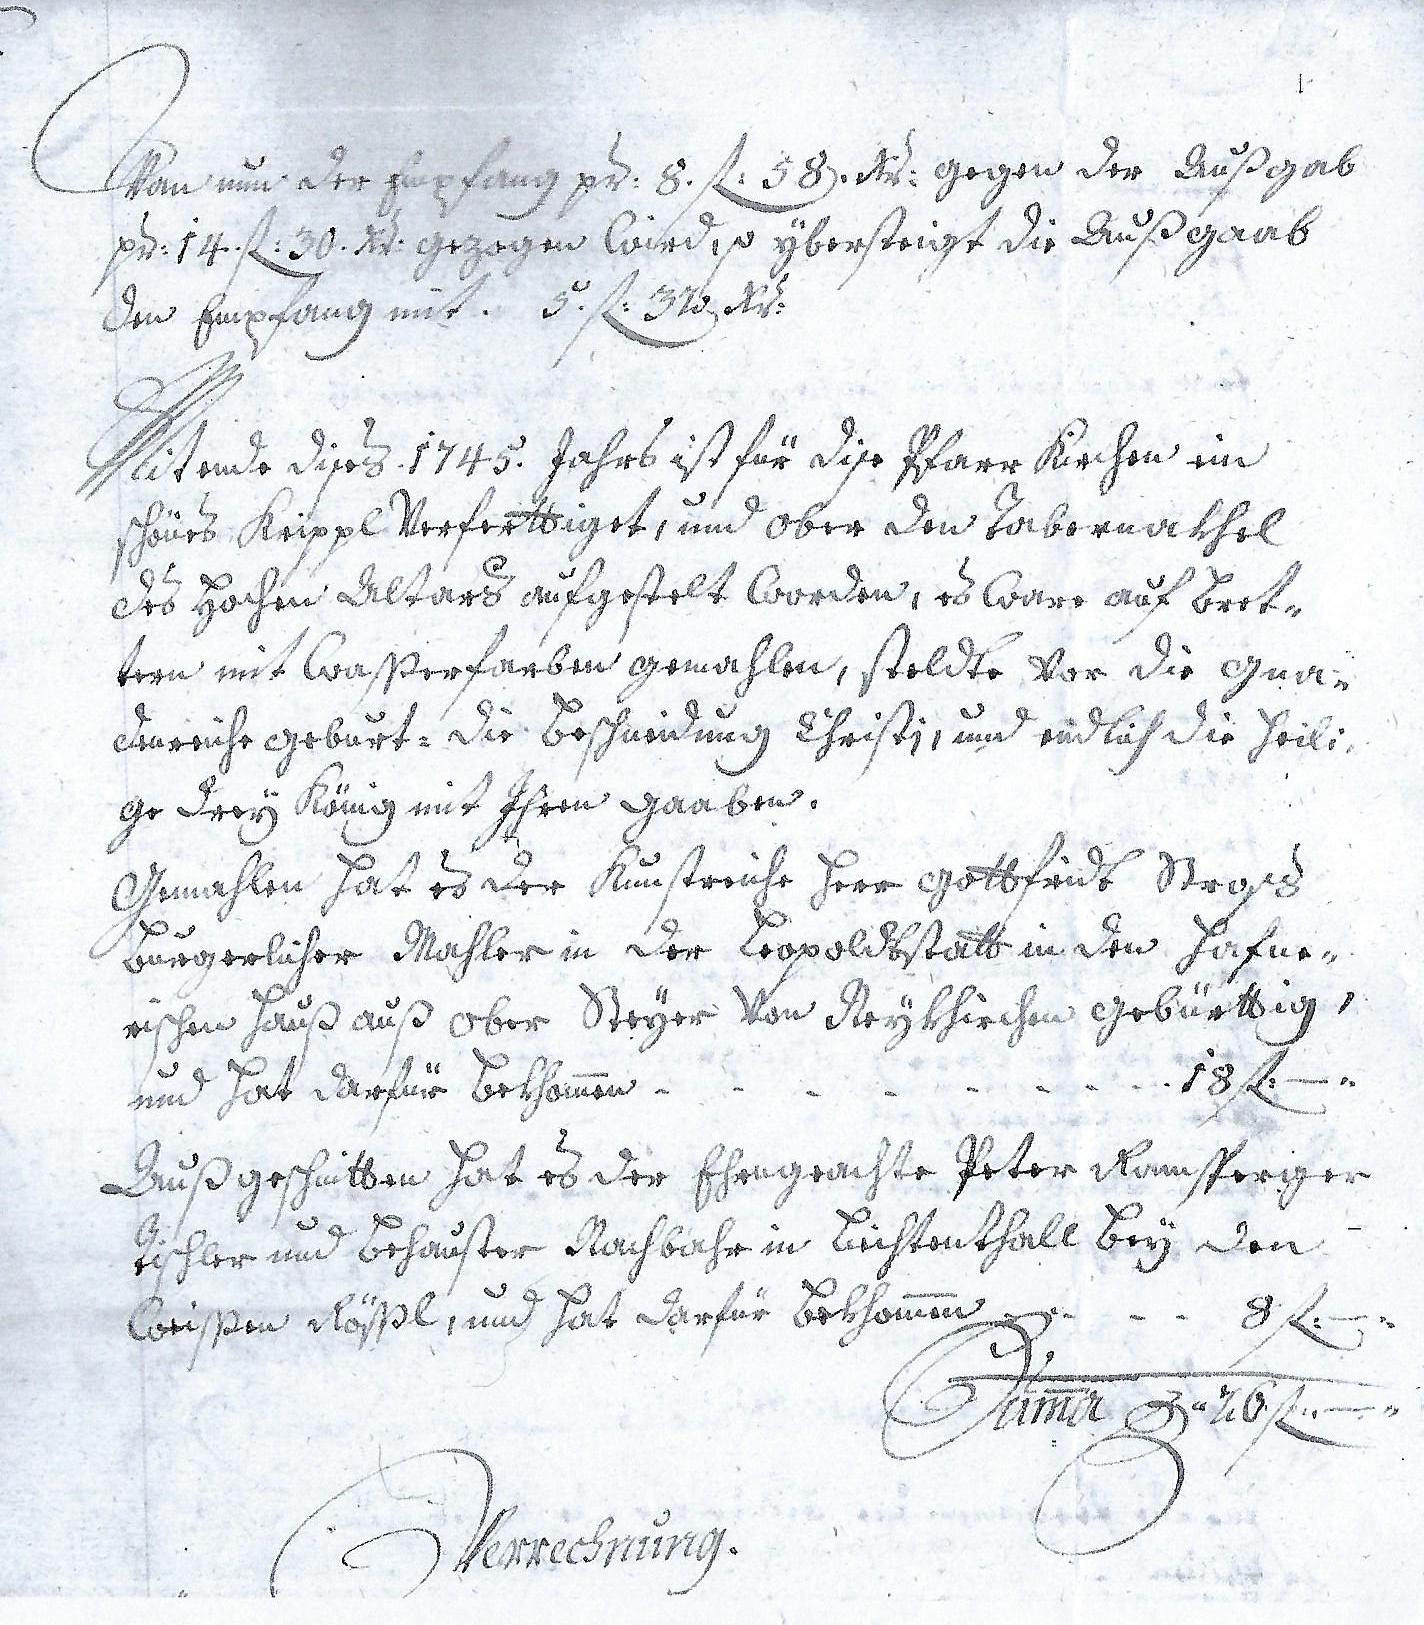 Wan nun der Empfang pr: 8. fl: 58. Kr: gegen der Außgab
pr: 14. fl: 30. Kr: gezogen wird, so ybersteigt die Außgaab
den Empfang mit. 5. fl: 32. Kr:
Mit ende dises 1745. Jahrs ist für dise Pfarr Kirchen ein
schönes Krippl Verferttiget, und ober den Tabernakhel
des Hochen Altars aufgestelt worden, es ware auf bret-
tern mit wasserfarben gemahlen, steldte vor die gna-
denreiche geburt= die beschneidung Christi, und endlich die heili-
ge drey König mit Ihren gaaben.
Gemahlen hat es der Kunstreiche Herr gottfridt
burgerlicher Mahler in der Leopoldtstatt in den Hafne-
rischen Hauß auß ober Steyer von Neykhirchen gebürttig,
und hat darfür bekhommen - - - - - - - 18 fl: —"
Außgeschnitten hat es der Ehrngeachte Peter Ramsperger
tischler und behauster Nachbahr in Liechtenthall bey den
weissen Rössl, und hat darfür bekhommen - - - 8 fl: —"
Summa 26 fl: —"
Verrechnung.